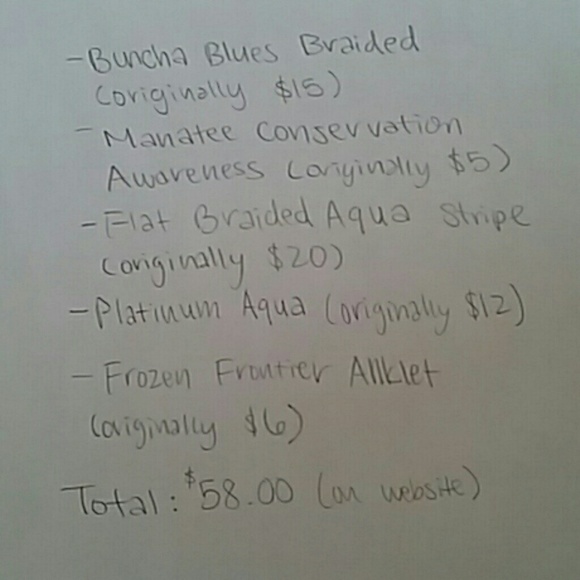 -Buncha Blues Braided
(originally $15)
-Manatee Conservation
Awareness (originally $5)
-Flat Braided Aqua Stripe
(originally $20)
-Platinum Aqua (originally $12)
-Frozen Frontier Anklet
(originally $6)
Total: $58.00 (on website)